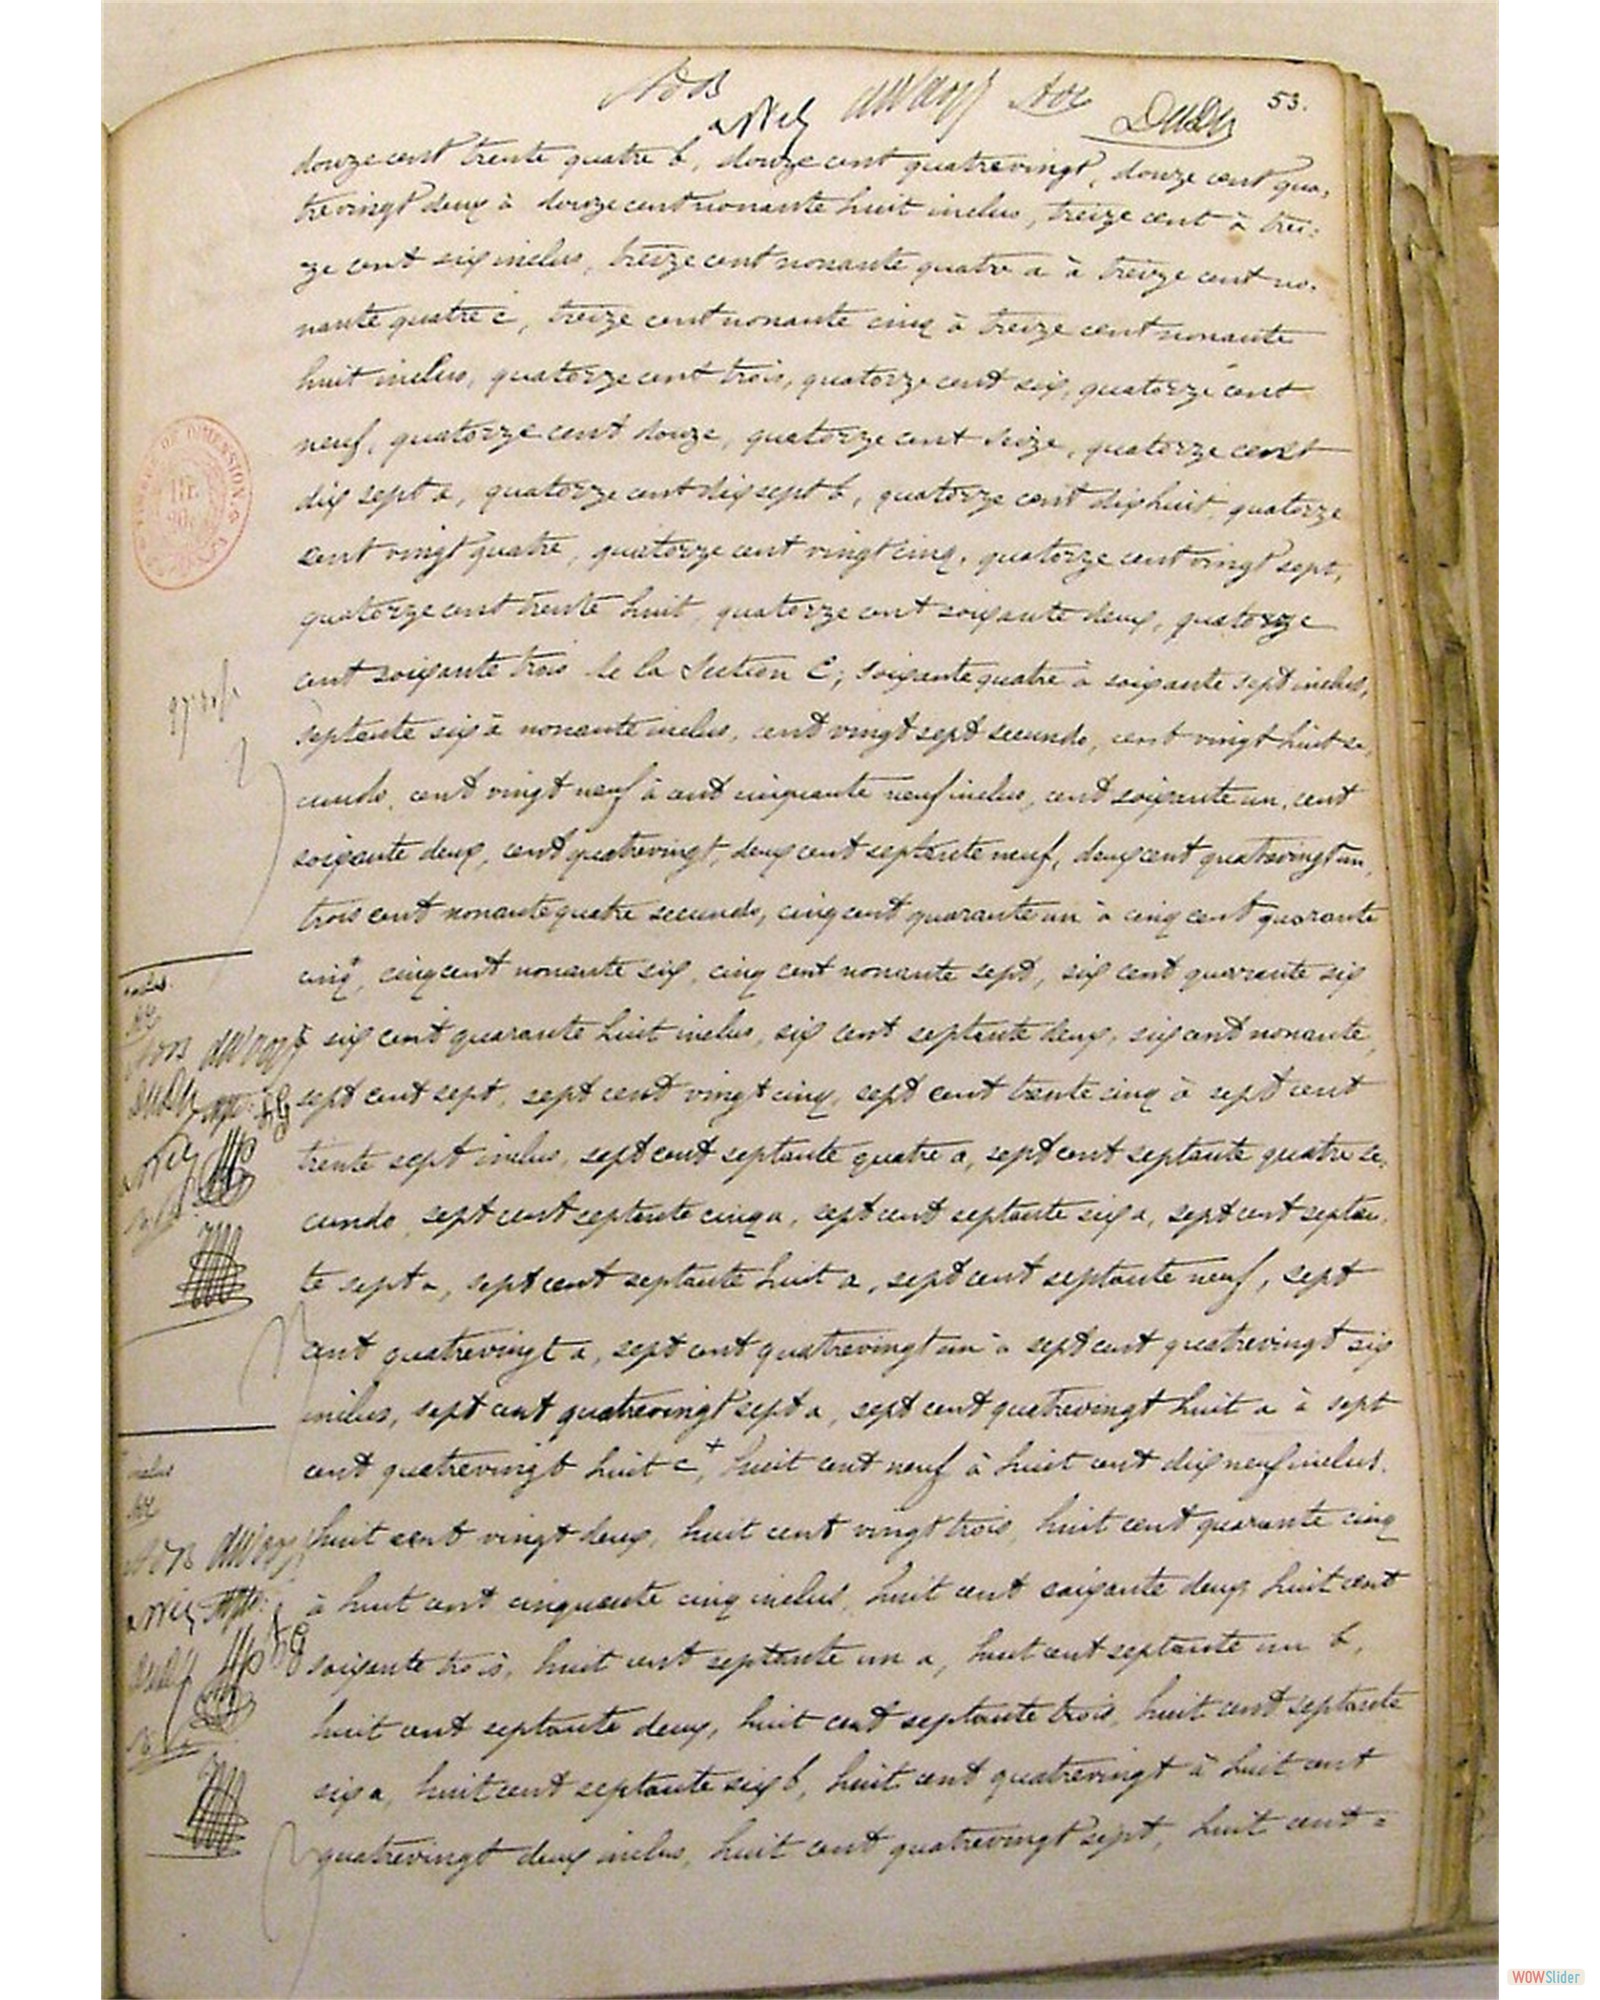 53.
douze cent trente quatre b, douze cent quatrevingt, douze cent qua,
trevingt deux à douze cent nonante huit inclus, treize cent à trei:
ze cent six inclus, treize cent nonante quatre a à treize cent no.
nante quatre c, treize cent nonante cinq à treize cent nonante
huit inclus, quatorze cent trois, quatorze cent six, quatorze cent
neuf, quatorze cent douze, quatorze cent seize, quatorze cent
dix sept a, quatorze cent dix sept b, quatorze cent dix huit, quatorze
cent vingt quatre, quatorze cent vingt cinq, quatorze cent vingt sept,
quatorze cent trente huit, quatorze cent soixante deux, quatorze
cent soixante trois de la Section C; soixante quatre à soixante sept inclus,
septante six à nonante inclus, cent vingt sept secundo, cent vingt huit se,
cundo, cent vingt neuf à cent cinquante neuf inclus, cent soixante un, cent
soixante deux, cent quatrevingt, deux cent septante neuf, deux cent quatrevingt un,
trois cent nonante quatre secundo, cinq cent quarante un à cinq cent quarante
cinq +, cinq cent nonante six, cinq cent nonante sept, six cent quarante six
à six cent quarante huit inclus, six cent septante deux, six cent nonante,
sept cent sept, sept cent vingt cinq, sept cent trente cinq à sept cent
trente sept inclus, sept cent septante quatre a, sept cent septante quatre se,
cundo, sept cent septante cinq a, sept cent septante six a, sept cent septan,
te sept a, sept cent septante huit a, sept cent septante neuf, sept
cent quatrevingt a, sept cent quatrevingt un à sept cent quatrevingt six
inclus, sept cent quatrevingt sept a, sept cent quatrevingt huit a à sept
cent quatrevingt huit c +, huit cent neuf à huit cent dix neuf inclus,
huit cent vingt deux, huit cent vingt trois, huit cent quarante cinq
à huit cent cinquante cinq inclus, huit cent soixante deux, huit cent
soixante trois, huit cent septante un a, huit cent septante un b,
huit cent septante deux, huit cent septante trois, huit cent septante
six a, huit cent septante six b, huit cent quatrevingt à huit cent
quatrevingt deux inclus, huit cent quatrevingt sept, huit cent =
+ inclus
+ inclus
WOWSlider